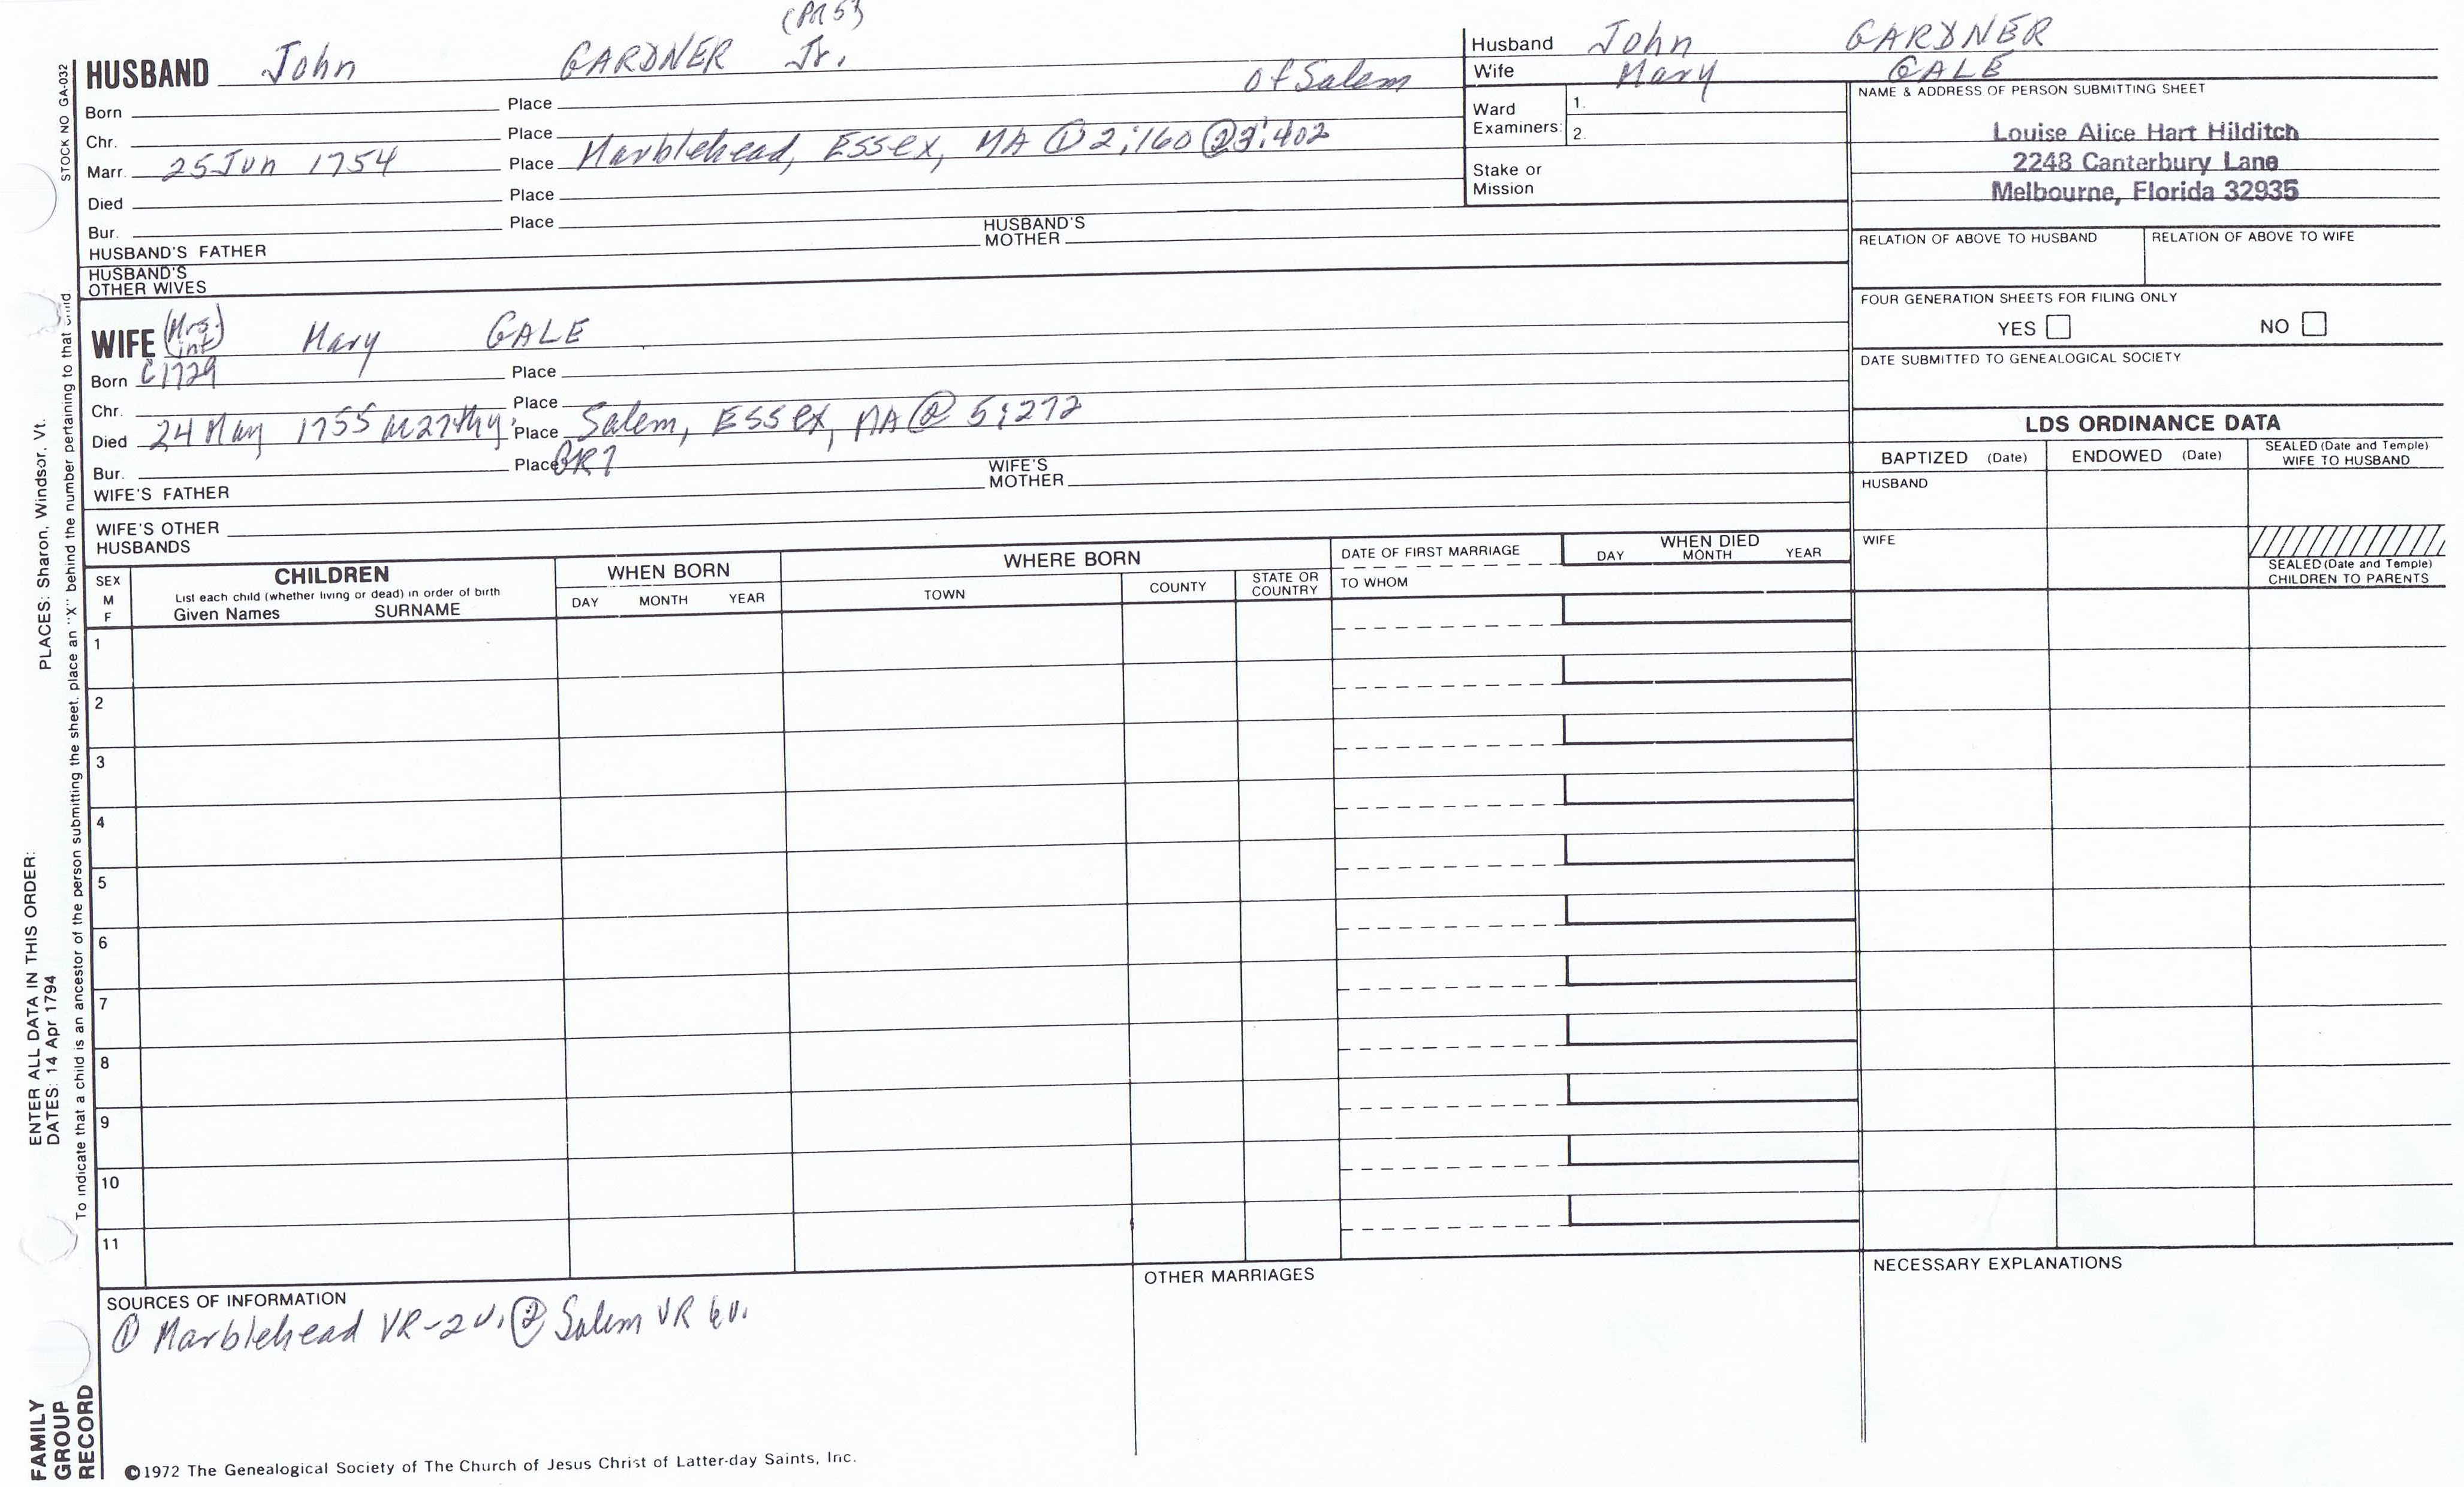 (PR5)
HUSBAND John GARDNER Jr. of Salem
Born Place
Chr. Place
Marr. 25 Jun 1754 Place Marblehead, Essex, MA ① 2:160 ② 3:402
Died Place
Bur. Place
HUSBAND'S FATHER HUSBAND'S MOTHER
HUSBAND'S OTHER WIVES
WIFE (Mrs. int) Mary GALE
Born C1729 Place
Chr. Place
Died 24 May 1755 Place Salem, Essex, MA ② 5:272
Bur. Place
WIFE'S FATHER WIFE'S MOTHER
WIFE'S OTHER HUSBANDS
Husband John GARDNER
Wife Mary GALE
Ward Examiners: 1.
2.
Stake or Mission
NAME & ADDRESS OF PERSON SUBMITTING SHEET
Louise Alice Hart Hilditch
2248 Canterbury Lane
Melbourne, Florida 32935
RELATION OF ABOVE TO HUSBAND RELATION OF ABOVE TO WIFE
FOUR GENERATION SHEETS FOR FILING ONLY
YES NO
DATE SUBMITTED TO GENEALOGICAL SOCIETY
LDS ORDINANCE DATA
BAPTIZED (Date) ENDOWED (Date) SEALED (Date and Temple) WIFE TO HUSBAND
HUSBAND
WIFE
SEALED (Date and Temple) CHILDREN TO PARENTS
SEX M F
CHILDREN
List each child (whether living or dead) in order of birth
Given Names SURNAME
WHEN BORN
DAY MONTH YEAR
WHERE BORN
TOWN COUNTY STATE OR COUNTRY
DATE OF FIRST MARRIAGE
TO WHOM
WHEN DIED
DAY MONTH YEAR
1
2
3
4
5
6
7
8
9
10
11
SOURCES OF INFORMATION
① Marblehead VR-2v. ② Salem VR 6v.
OTHER MARRIAGES
NECESSARY EXPLANATIONS
©1972 The Genealogical Society of The Church of Jesus Christ of Latter-day Saints, Inc.
STOCK NO GA-032
PLACES: Sharon, Windsor, Vt.
ENTER ALL DATA IN THIS ORDER:
DATES: 14 Apr 1794
To indicate that a child is an ancestor of the person submitting the sheet, place an "X" behind the number pertaining to that child
FAMILY
GROUP
RECORD